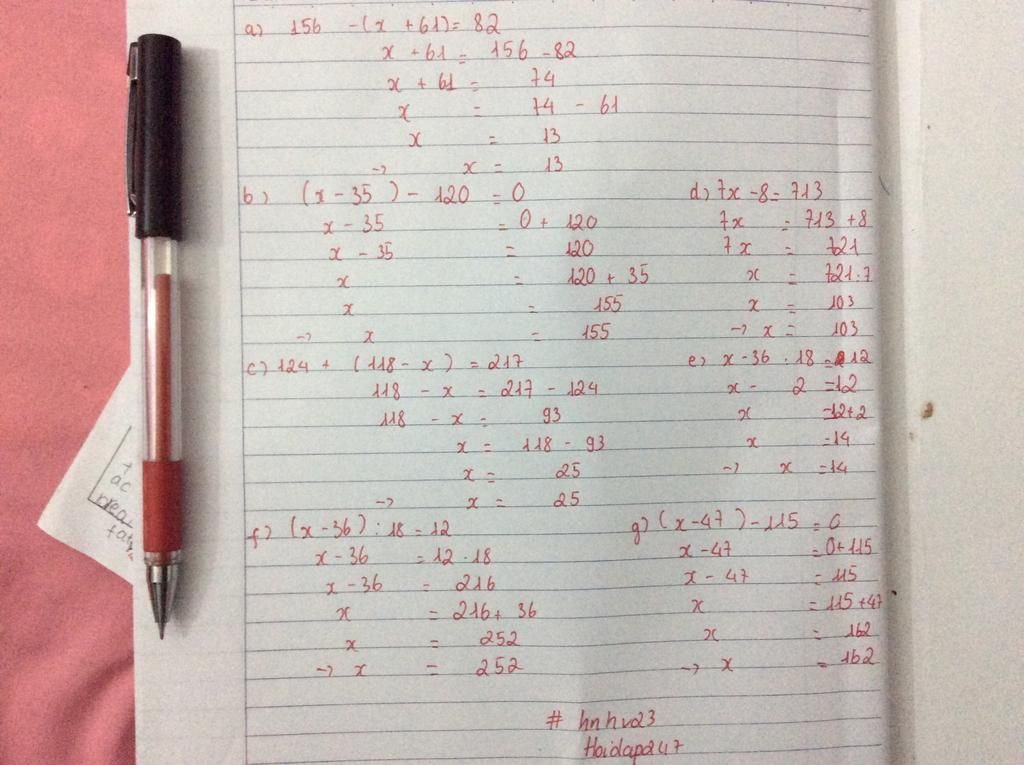 a) 156 - (x + 61) = 82
x + 61 = 156 - 82
x + 61 = 74
x = 74 - 61
x = 13
-> x = 13
b) (x - 35) - 120 = 0
x - 35 = 0 + 120
x - 35 = 120
x = 120 + 35
x = 155
-> x = 155
c) 124 + (118 - x) = 217
118 - x = 217 - 124
118 - x = 93
x = 118 - 93
x = 25
-> x = 25
d) 7x - 8 = 713
7x = 713 + 8
7x = 721
x = 721 : 7
x = 103
-> x = 103
e) x - 36 : 18 = 12
x - 2 = 12
x = 12 + 2
x = 14
-> x = 14
f) (x - 36) : 18 = 12
x - 36 = 12 . 18
x - 36 = 216
x = 216 + 36
x = 252
-> x = 252
g) (x - 47) - 115 = 0
x - 47 = 0 + 115
x - 47 = 115
x = 115 + 47
x = 162
-> x = 162
# hnhv23
Hoidap247
ac